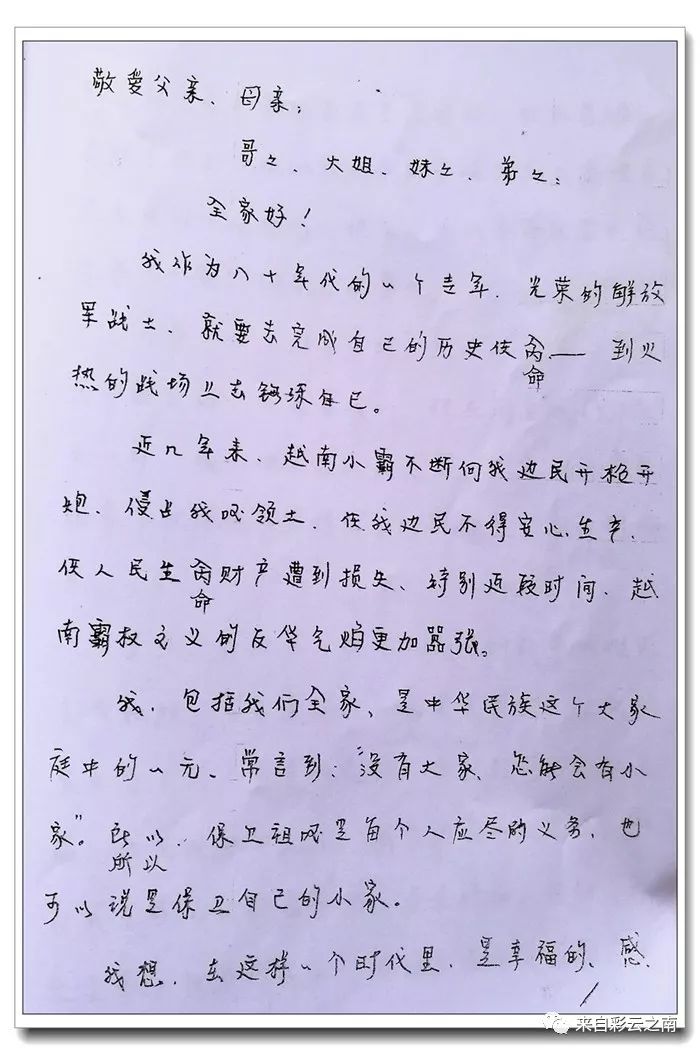 敬爱父亲、母亲；
哥々、大姐、妹々、弟々：
全家好！
我作为八十年代的一个青年，光荣的解放
军战士，就要去完成自己的历史使命——到火
命
热的战场上去锻炼自己。
近几年来，越南小霸不断向我边民开枪开
炮、侵占我国领土，使我边民不得安心生产，
使人民生命财产遭到损失、特别近段时间，越
命
南霸权主义的反华气焰更加嚣张。
我，包括我们全家，是中华民族这个大家
庭中的一元。常言到：“没有大家，怎能会有小
家”。所以，保卫祖国是每个人应尽的义务，也
所以
可以说是保卫自己的小家。
我想，在这样一个时代里，是幸福的、感
1
来自彩云之南